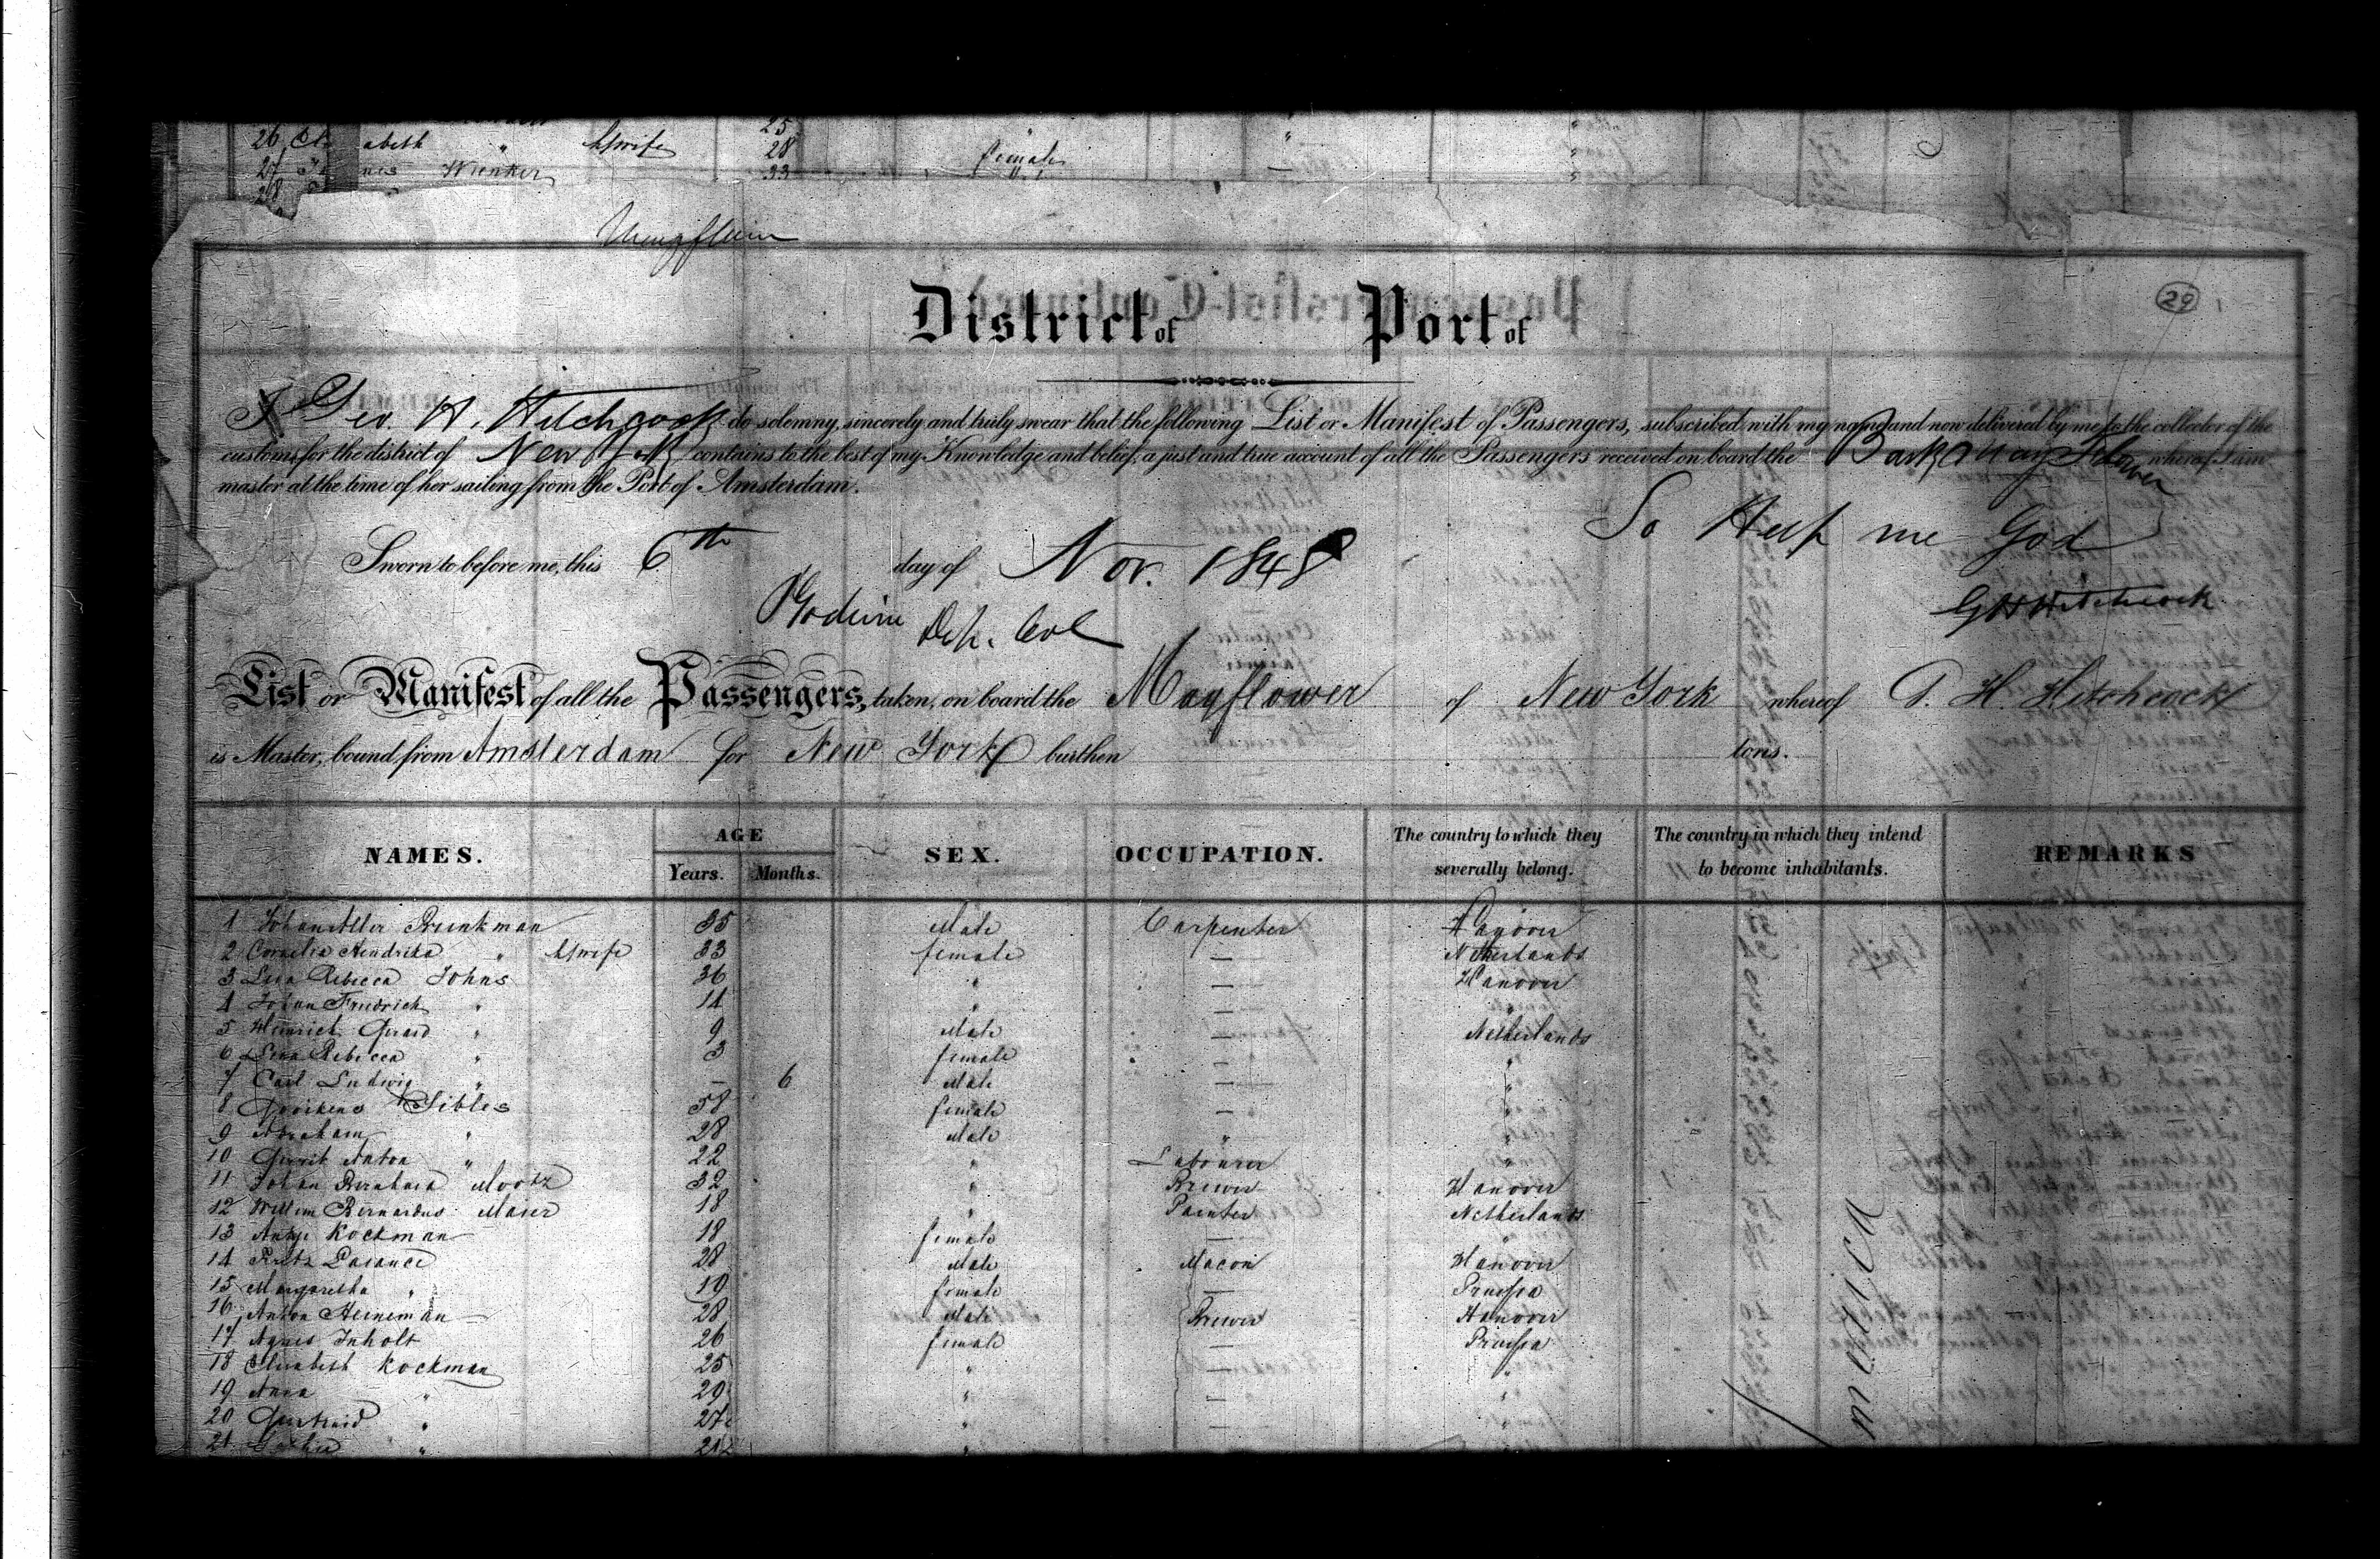 26 abeth " Hswife 28 female "
27 nes Wienker 33
28
29
District of Port of
I Geo. H. Hitchcock do solemny, sincerely and truly swear that the following List or Manifest of Passengers, subscribed with my name and now delivered by me to the collector of the
customs for the district of New York contains to the best of my Knowledge and belief, a just and true account of all the Passengers received on board the Bark May Flower whereof I am
master at the time of her sailing from the Port of Amsterdam.
So Help me God
Sworn to before me, this 6th day of Nov. 1848
GH Hitchcock
Dep. Col
List or Manifest of all the Passengers, taken, on board the Mayflower of New York whereof G. H. Hitchcock
is Master, bound from Amsterdam for New York burthen tons.
NAMES. AGE Years. Months. SEX. OCCUPATION. The country to which they severally belong. The country in which they intend to become inhabitants. REMARKS
1 Johan Brinkman 35 Male Carpenter Hanover
2 Cornelia Hendrika " Hswife 33 female — Netherlands
3 Rebecca Johns 36 " — Hanover
4 Johan Friedrich " 14 " — "
5 Heinrich Gerard " 9 Male — Netherlands
6 Rebecca " 3 female — "
7 Carl Ludwig " — 6 Male — "
8 Sibles 58 female — "
9 Abraham " 28 Male " "
10 Gerrit Anton " 22 " Labourer "
11 Johan Bernhard Mootz 32 " Brewer Hanover
12 Willem Bernardus Maser 18 " Painter Netherlands
13 Antje Kockman 18 female — "
14 Fritz 28 Male Macon Hanover
15 Margaretha " 19 female — Prussia
16 Anton Heineman 28 Male Brewer Hanover
17 Agnes Inholt 26 female — Prussia
18 Elisabeth Kockman 25 " — "
19 Anna " 29 " — "
20 " 27 " —
21 " 21 "
America